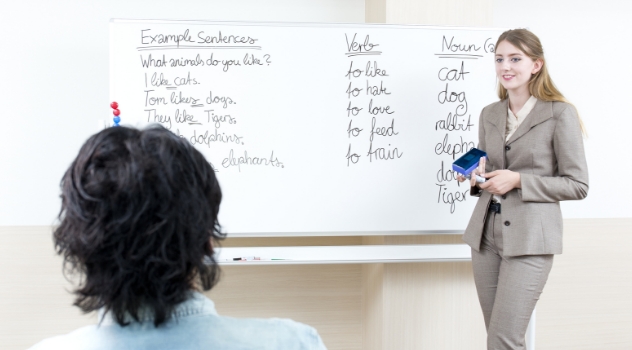 Example Sentences
What animals do you like?
I like cats.
Tom likes dogs.
They like Tigers.
to dolphins.
elephants.
Verb
to like
to hate
to love
to feed
to train
Noun
cat
dog
rabbit
Tiger